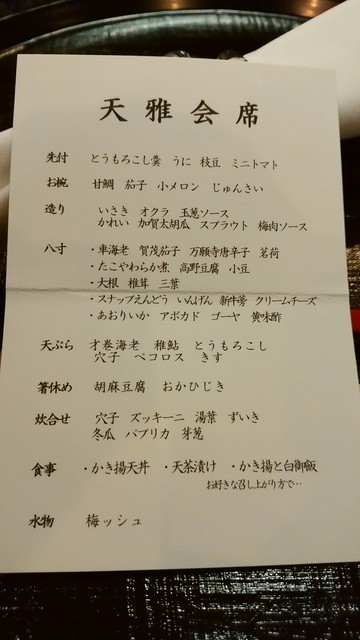 天雅会席
先付 とうもろこし羹 うに 枝豆 ミニトマト
お椀 甘鯛 茄子 小メロン じゅんさい
造り いさき オクラ 玉葱ソース
かれい 加賀太胡瓜 スプラウト 梅肉ソース
八寸 ・車海老 賀茂茄子 万願寺唐辛子 茗荷
・たこやわらか煮 高野豆腐 小豆
・大根 椎茸 三葉
・スナップえんどう いんげん 新牛蒡 クリームチーズ
・あおりいか アボカド ゴーヤ 黄味酢
天ぷら 才巻海老 稚鮎 とうもろこし
穴子 ペコロス きす
箸休め 胡麻豆腐 おかひじき
炊合せ 穴子 ズッキーニ 湯葉 ずいき
冬瓜 パプリカ 芽葱
食事 ・かき揚天丼 ・天茶漬け ・かき揚と白御飯
お好きな召し上がり方で…
水物 梅ッシュ